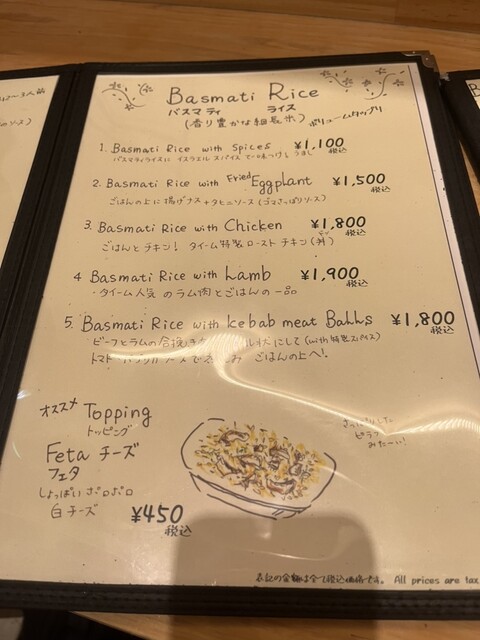 Basmati Rice
バスマティ ライス
(香り豊かな細長米) ボリュームタップリ
1. Basmati Rice with Spices ¥1,100 税込
バスマティライスに イスラエル スパイス で
2. Basmati Rice with Fried Eggplant ¥1,500 税込
ごはんの上に 揚げナス + タヒニソース (ゴマさっぱりソース)
3. Basmati Rice with Chicken ¥1,800 税込
ごはんとチキン! タイーム特製 ロースト チキン(丼)
4 Basmati Rice with Lamb ¥1,900 税込
・タイーム人気 のラム肉とごはんの一品
5. Basmati Rice with kebab meat Balls ¥1,800 税込
ビーフとラムの合挽き 状にして (with 特製スパイス)
トマト ごはんの上へ!
オススメ Topping
トッピング
Feta チーズ
フェタ
しょっぱい ボロボロ
白チーズ ¥450 税込
さっぱりした
ピラフ
みたーい!
表記の金額は全て税込価格です。 All prices are tax